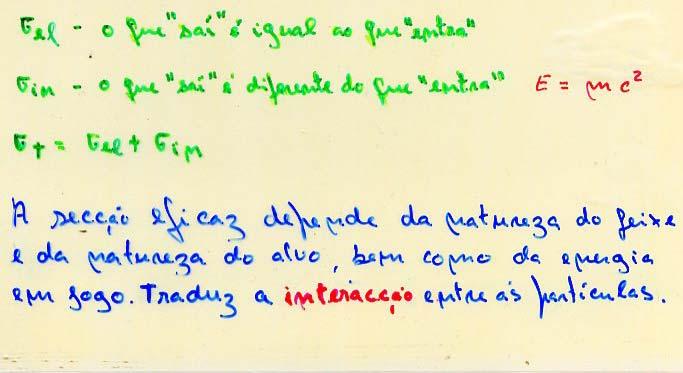 σel - o que "sai" é igual ao que "entra"
σin - o que "sai" é diferente do que "entra" E = mc²
σt = σel + σin
A secção eficaz depende da natureza do feixe
e da natureza do alvo, bem como da energia
em jogo. Traduz a interacção entre as partículas.